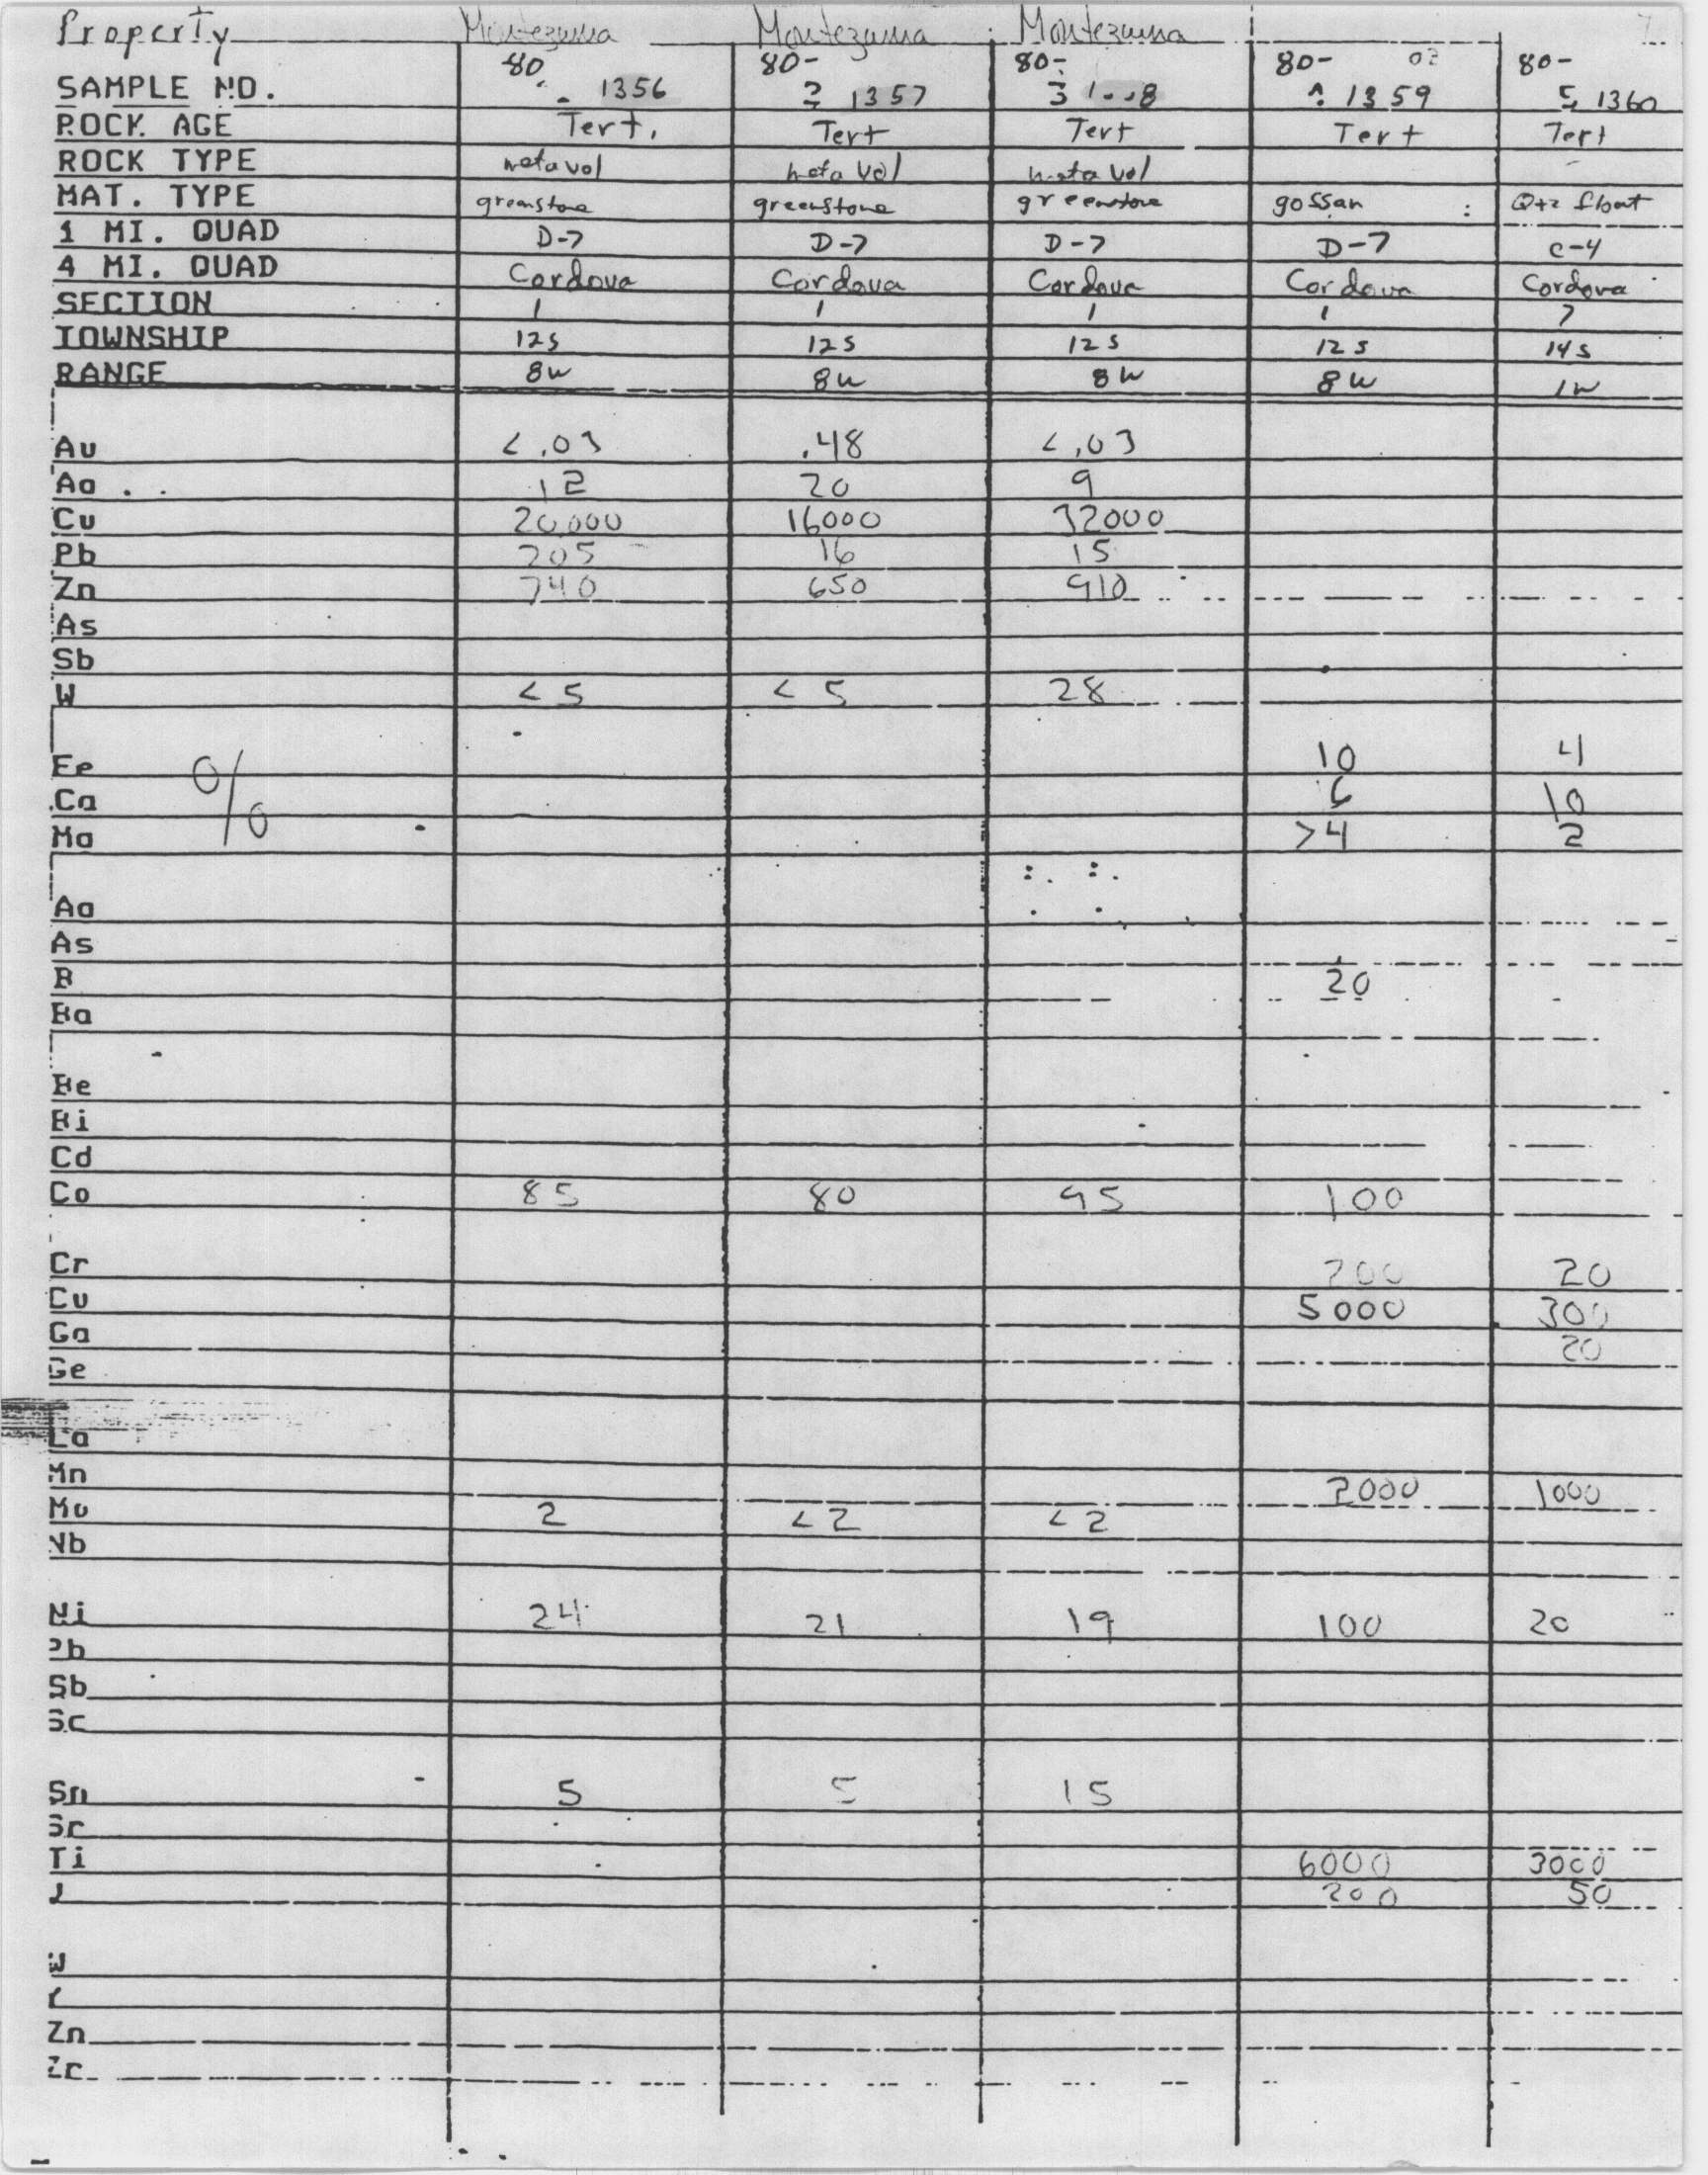 Property Montezuma Montezuma Montezuma
80 80- 80- 80- 80-
SAMPLE NO. 1356 2 1357 3 1359 5 1360
ROCK AGE Tert. Tert Tert Tert Tert
ROCK TYPE meta vol meta vol meta vol
MAT. TYPE greenstone greenstone greenstone gossan Qtz float
1 MI. QUAD D-7 D-7 D-7 D-7 C-4
4 MI. QUAD Cordova Cordova Cordova Cordova Cordova
SECTION 1 1 1 1 7
TOWNSHIP 12S 12S 12S 12S 14S
RANGE 8W 8W 8W 8W 1W
Au <.03 .48 <.03
Ag 12 20 9
Cu 20,000 16000 32000
Pb 205 16 15
Zn 740 650 910
As
Sb
W <5 <5 28
Fe % 10 4
Ca 6 10
Mg >4 2
Ag
As
B 20
Ba
Be
Bi
Cd
Co 85 80 95 100
Cr 200 20
Cu 5000 300
Ga 20
Ge
La
Mn 2000 1000
Mo 2 <2 <2
Nb
Ni 24 21 19 100 20
Pb
Sb
Sc
Sn 5 5 15
Sr
Ti 6000 3000
200 50
W
Zn
Zr